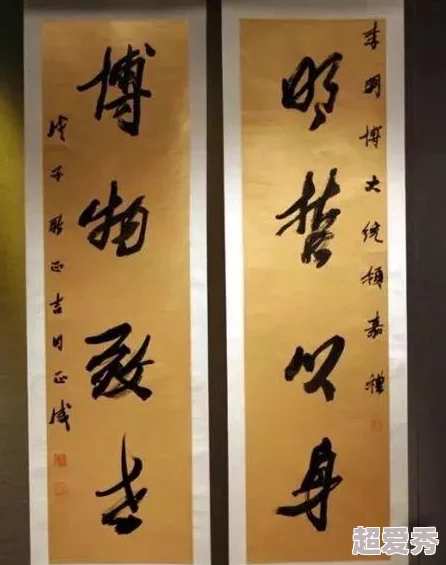 李明博大统领嘉禮
明哲以身
博物致世
戊子 正吉月正
超爱秀